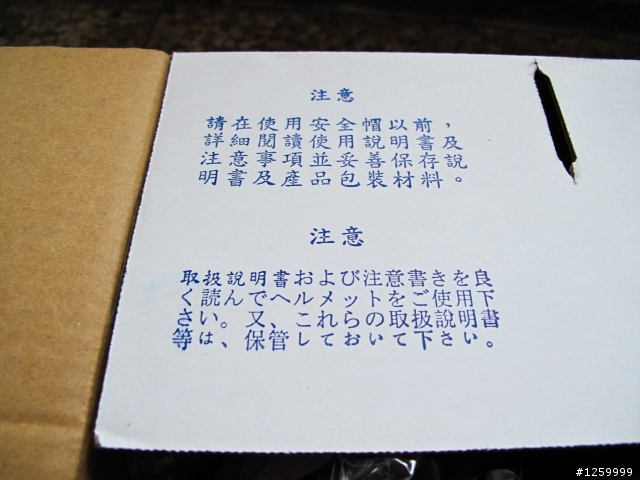 注意
請在使用安全帽以前，
詳細閱讀使用說明書及
注意事項並妥善保存說
明書及產品包裝材料。
注意
取扱説明書および注意書きを良
く読んでヘルメットをご使用下
さい。又、これらの取扱説明書
等は、保管しておいて下さい。
#1259999